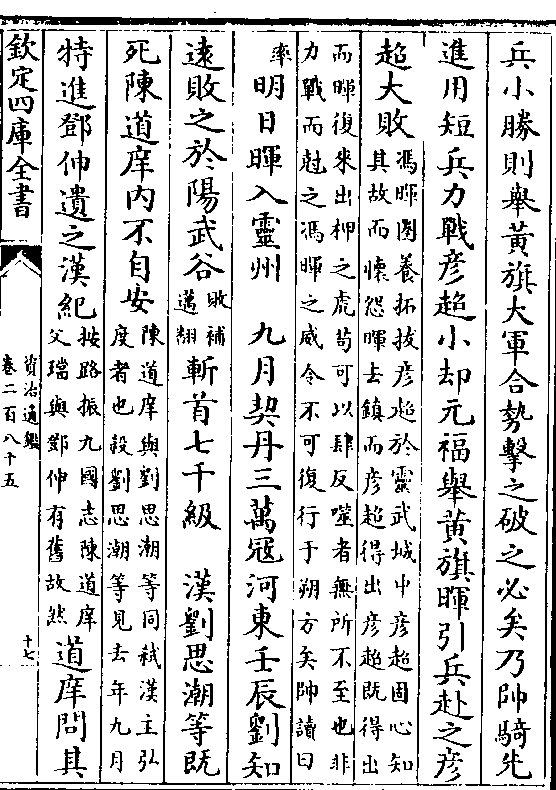 兵小勝則舉黃旗大軍合勢擊之破之必矣乃帥騎先
進用短兵力戰彦超小却元福舉黃旗暉引兵赴之彦
超大敗馮暉圏養拓拔彦超於靈武城中彦超固心知
其故而懷怨暉去鎮而彦超得出彦超既得出
而暉復來出柙之虎茍可以肆反噬者無所不至也非
力戰而尅之馮暉之威令不可復行于朔方矣帥讀曰
率明日暉入靈州　九月契丹三萬冦河東壬辰劉知
逺敗之於陽武谷敗補
邁翻斬首七千級　漢劉思潮等既
死陳道庠内不自安陳道庠與劉思潮等同弑漢主弘
度者也殺劉思潮等見去年九月
特進鄧伸遺之漢紀按路振九國志陳道庠
父璫與鄧伸有舊故然道庠問其
欽定四庫全書
資治通鑑
卷二百八十五
十七